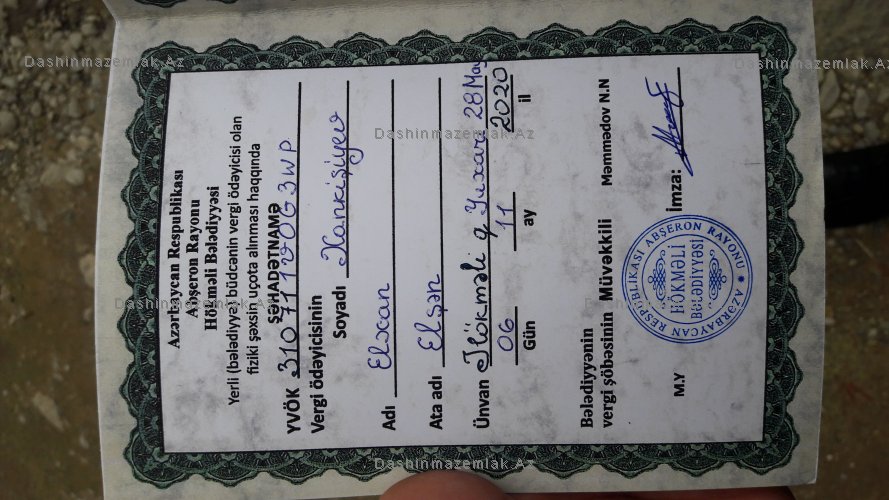 Azərbaycan Respublikası
Abşeron Rayonu
Hökməli Bələdiyyəsi
Yerli (bələdiyyə) büdcənin vergi ödəyicisi olan
fiziki şəxsin uçota alınması haqqında
ŞƏHADƏTNAMƏ
YVÖK
Vergi ödəyicisinin
Soyadı Xankişiyev
Adı Elxan
Ata adı Elşən
Ünvan Hökməli q Yuxarı 28 May
06 11 2020
Gün ay il
Bələdiyyənin
vergi şöbəsinin Müvəkkili Məmmədov N.N
M.Y İmza:
AZƏRBAYCAN RESPUBLİKASI ABŞERON RAYONU
HÖKMƏLİ
BƏLƏDİYYƏSİ
Dashinmazemlak.Az
Dashinmazemlak.Az
Dashinmazemlak.Az
Dashinmazemlak.Az
Dashinmazemlak.Az
Dashinmazemlak.Az